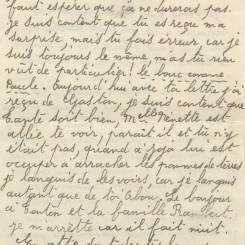 faut esperer que ça ne durera pas.
je suis content que tu es reçu ma
surprise, mais tu fais erreur car je
suis toujours le même, mais tu rien
vut de particulier! le bouc comme
Paule. Aujourd'hui avec ta lettre j'ai
reçu de Gaston, je suis content que
soit bien, Melle Ginette est
allée te voir, parait il et tu n'y
était pas, quand a joja lui est
occuper a arracher les pommes de terres
je languis de les voirs, car je languis
autant que de toi Le bonjour
a Tonton et la famille Rambert.
je m'arrète car il fait nuit.